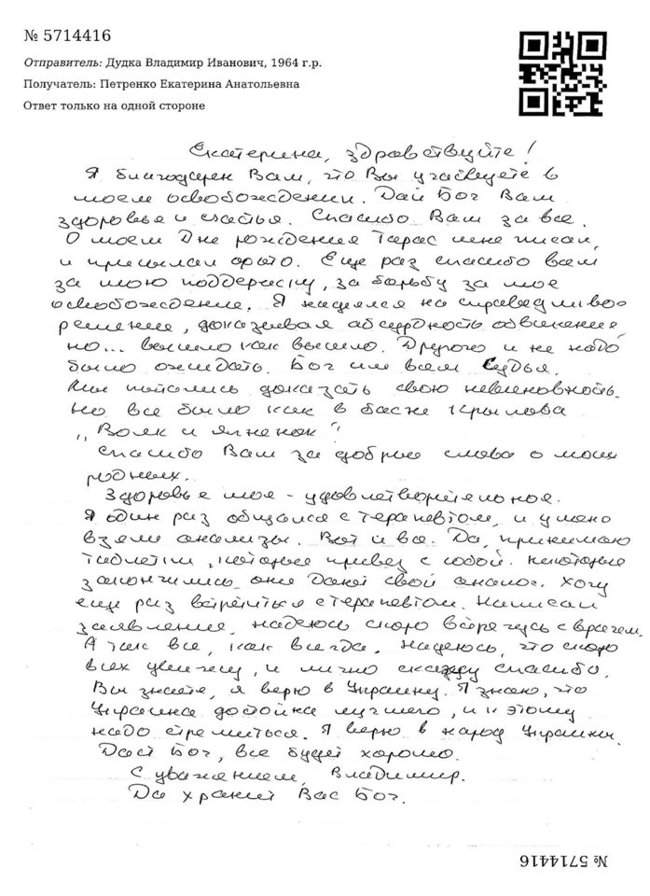 № 5714416
Отправитель: Дудка Владимир Иванович, 1964 г.р.
Получатель: Петренко Екатерина Анатольевна
Ответ только на одной стороне
Екатерина, здравствуйте!
Я благодарен Вам, что Вы участвуете в
моем освобождении. Дай Бог Вам
здоровья и счастья. Спасибо Вам за все.
О моем Дне рождения Тарас мне писал,
и присылал фото. Еще раз спасибо всем
за мою поддержку, за борьбу за мое
освобождение. Я надеялся на справедливое
решение, доказывая абсурдность обвинения,
но... вышло как вышло. Другого и не надо
было ожидать. Бог им всем Судья.
Мы пытались доказать свою невиновность.
Но все было как в басне Крылова
„Волк и ягненок"
Спасибо Вам за добрые слова о моих
родных.
Здоровье мое - удовлетворительное.
Я один раз общался с терапевтом, и у меня
взяли анализы. Вот и все. Да, принимаю
таблетки, которые привез с собой. Некоторые
закончились, они дают свой аналог. Хочу
еще раз встретиться с терапевтом. Написал
заявление, надеюсь скоро встречусь с врачем.
А так все, как всегда. Надеюсь, что скоро
всех увижу, и лично скажу спасибо.
Вы знаете, я верю в Украину. Я знаю, что
Украина достойна лучшего, и к этому
надо стремиться. Я верю в народ Украины.
Даст Бог, все будет хорошо.
С уважением, Владимир.
Да хранит Вас Бог.
№ 5714416